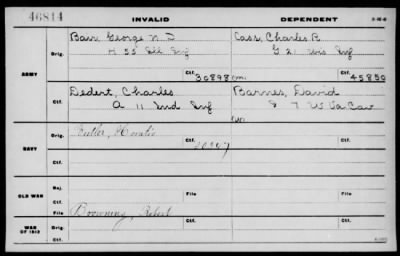 46814
INVALID
DEPENDENT
ARMY
Orig.
Barr, George N. D
H 55 Ill Inf
Ctf.
30898
Cass, Charles R
G 21 Wis Inf
Ctf.
45850
Ctf.
Dedert, Charles
A 11 Ind Inf
Barnes, David
7 W Va Cav
NAVY
Orig.
Butler, Horatio
Ctf.
20247
Orig.
Ctf.
OLD WAR
Rej.
Ctf.
File
File
WAR OF 1812
Browning, Robert
Orig.
Ctf.
Ctf.